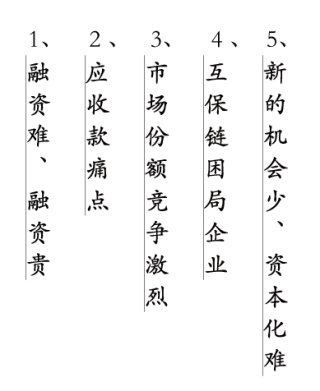 1、融资难、融资贵
2、应收款痛点
3、市场份额竞争激烈
4、互保链困局企业
5、新的机会少、资本化难